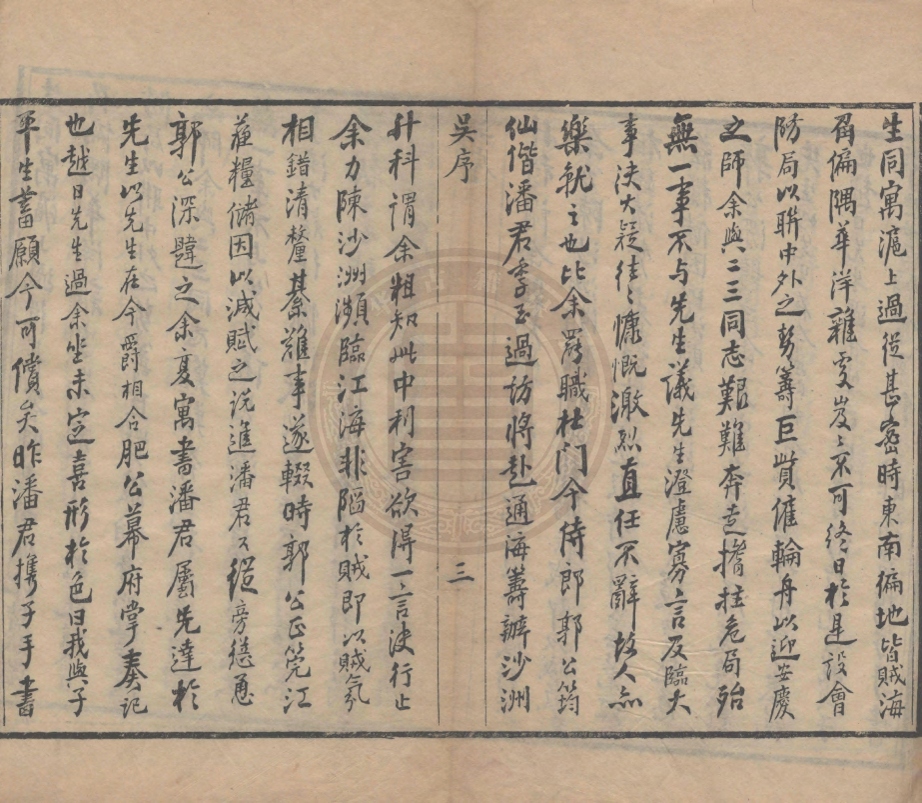 生同寓滬上過從甚密時東南徧地皆賊海
舀偏隅華洋雜處岌〻不可終日於是設會
防局以聯中外之勢籌巨貲僱輪舟以迎安慶
之師余與二三同志艱難奔走撐拄危局殆
無一事不与先生議先生澄慮寡言反臨大
事決大疑往〻慷慨激烈直任不辭故人亦
樂就之也比余罷職杜門今侍郎郭公筠
仙偕潘君季玉過訪將赴通海籌辦沙洲
吳序
三
升科謂余粗知此中利害欲得一言決行止
余力陳沙洲瀕臨江海非陷於賊即以賊氛
相錯清釐綦難事遂輟時郭公正筦江
蘇糧儲因以減賦之説進潘君又從旁慫恿
郭公深韙之余夏寓書潘君屬先達於
先生以先生在今爵相合肥公幕府掌奏記
也越日先生過余坐未定喜形於色曰我與子
平生蓄願今可償矣昨潘君携子手書